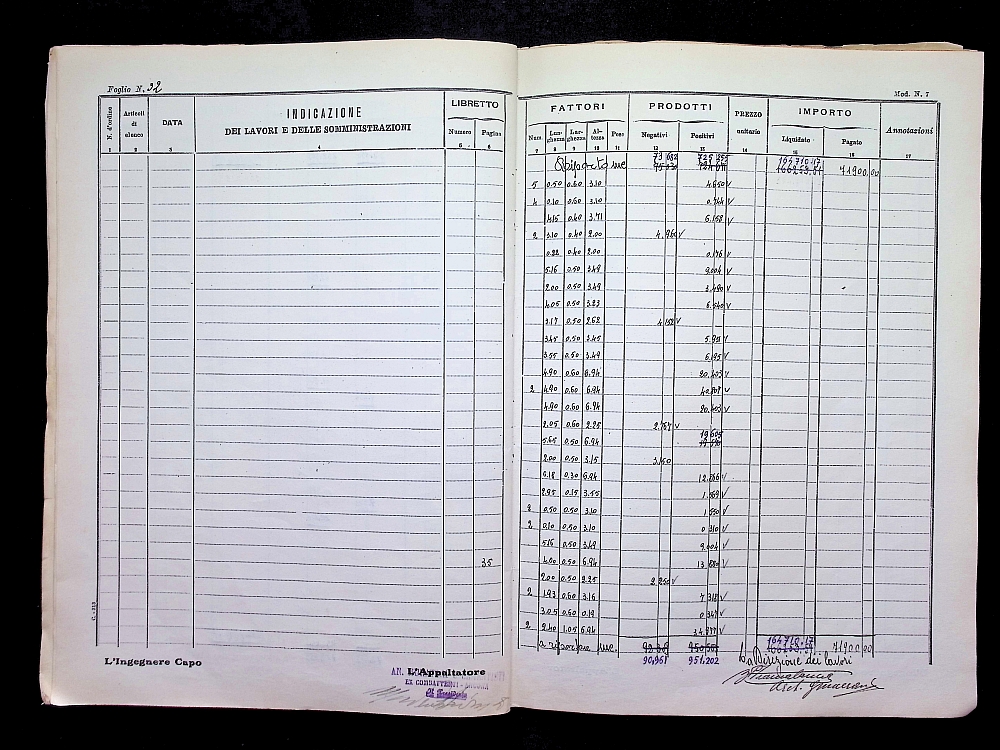 Foglio N. 32
Mod. N. 7
N. d'ordine
Articoli di elenco
DATA
INDICAZIONE
DEI LAVORI E DELLE SOMMINISTRAZIONI
LIBRETTO
Numero Pagina
FATTORI
Num. Lunghezza Larghezza Altezza Peso
PRODOTTI
Negativi Positivi
PREZZO unitario
IMPORTO
Liquidato Pagato
Annotazioni
1 2 3 4 5 6 7 8 9 10 11 12 13 14 15 16 17
Riporto me 71900,00
5 0.50 0.60 3.10 4.650 V
4 0.10 0.60 3.10 0.744 V
4.15 0.40 3.71 6.158 V
2 3.10 0.40 2.00 4.960 V
0.22 0.40 2.00 0.176 V
5.16 0.50 3.49 9.004 V
2.00 0.50 3.49 3.490 V
4.05 0.50 3.23 6.540 V
3.17 0.50 2.62 4.152 V
3.45 0.50 3.45 5.951 V
3.55 0.50 3.49 6.195 V
4.90 0.60 6.94 20.403 V
2 4.90 0.60 6.94 40.807 V
4.90 0.60 6.94 20.403 V
2.05 0.60 2.25 2.767 V
5.65 0.50 6.94 19.605
2.00 0.50 3.15 3.150
6.18 0.30 6.94 12.866 V
2.95 0.15 3.55 1.569 V
2 0.50 0.50 3.10 1.550 V
2 0.10 0.50 3.10 0.310 V
5.16 0.50 3.49 9.004 V
35 4.00 0.50 6.94 13.880 V
2.00 0.50 2.25 2.250 V
2 1.93 0.60 3.16 7.318 V
3.05 0.60 0.19 0.347 V
2 2.40 1.05 6.94 34.977 V
a riportare me. 164710.17 71900,00
90,961 951.202
C. - 213
L'Ingegnere Capo
L'Appaltatore
EX COMBATTENTI - ANCONA
Il Presidente
La Direzione dei lavori